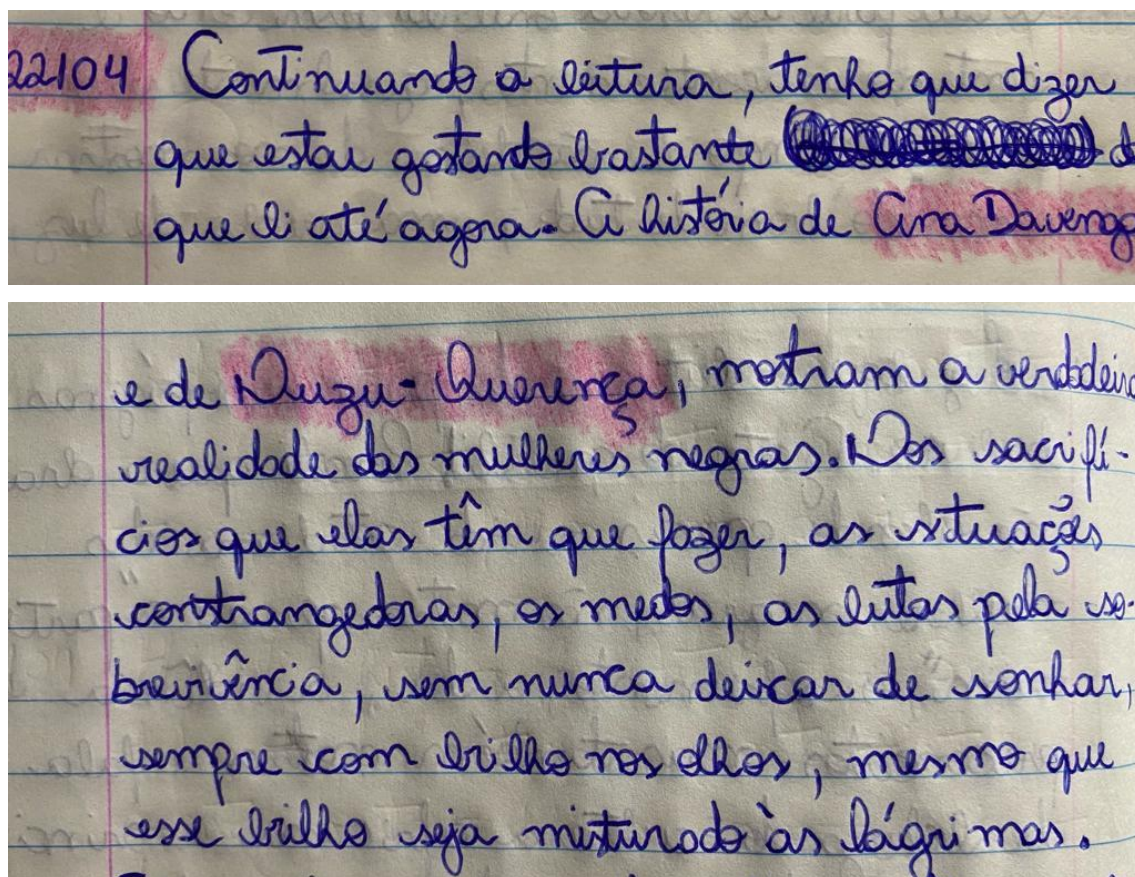 22/04 Continuando a leitura, tenho que dizer
que estou gostando bastante d
que li até agora. A história de Ana Davenga
e de Duzu-Querença, mostram a verdadeira
realidade das mulheres negras. Dos sacrifí-
cios que elas têm que fazer, as situações
constrangedoras, os medos, as lutas pela so-
brevivência, sem nunca deixar de sonhar,
sempre com brilho nos olhos, mesmo que
esse brilho seja misturado às lágrimas.